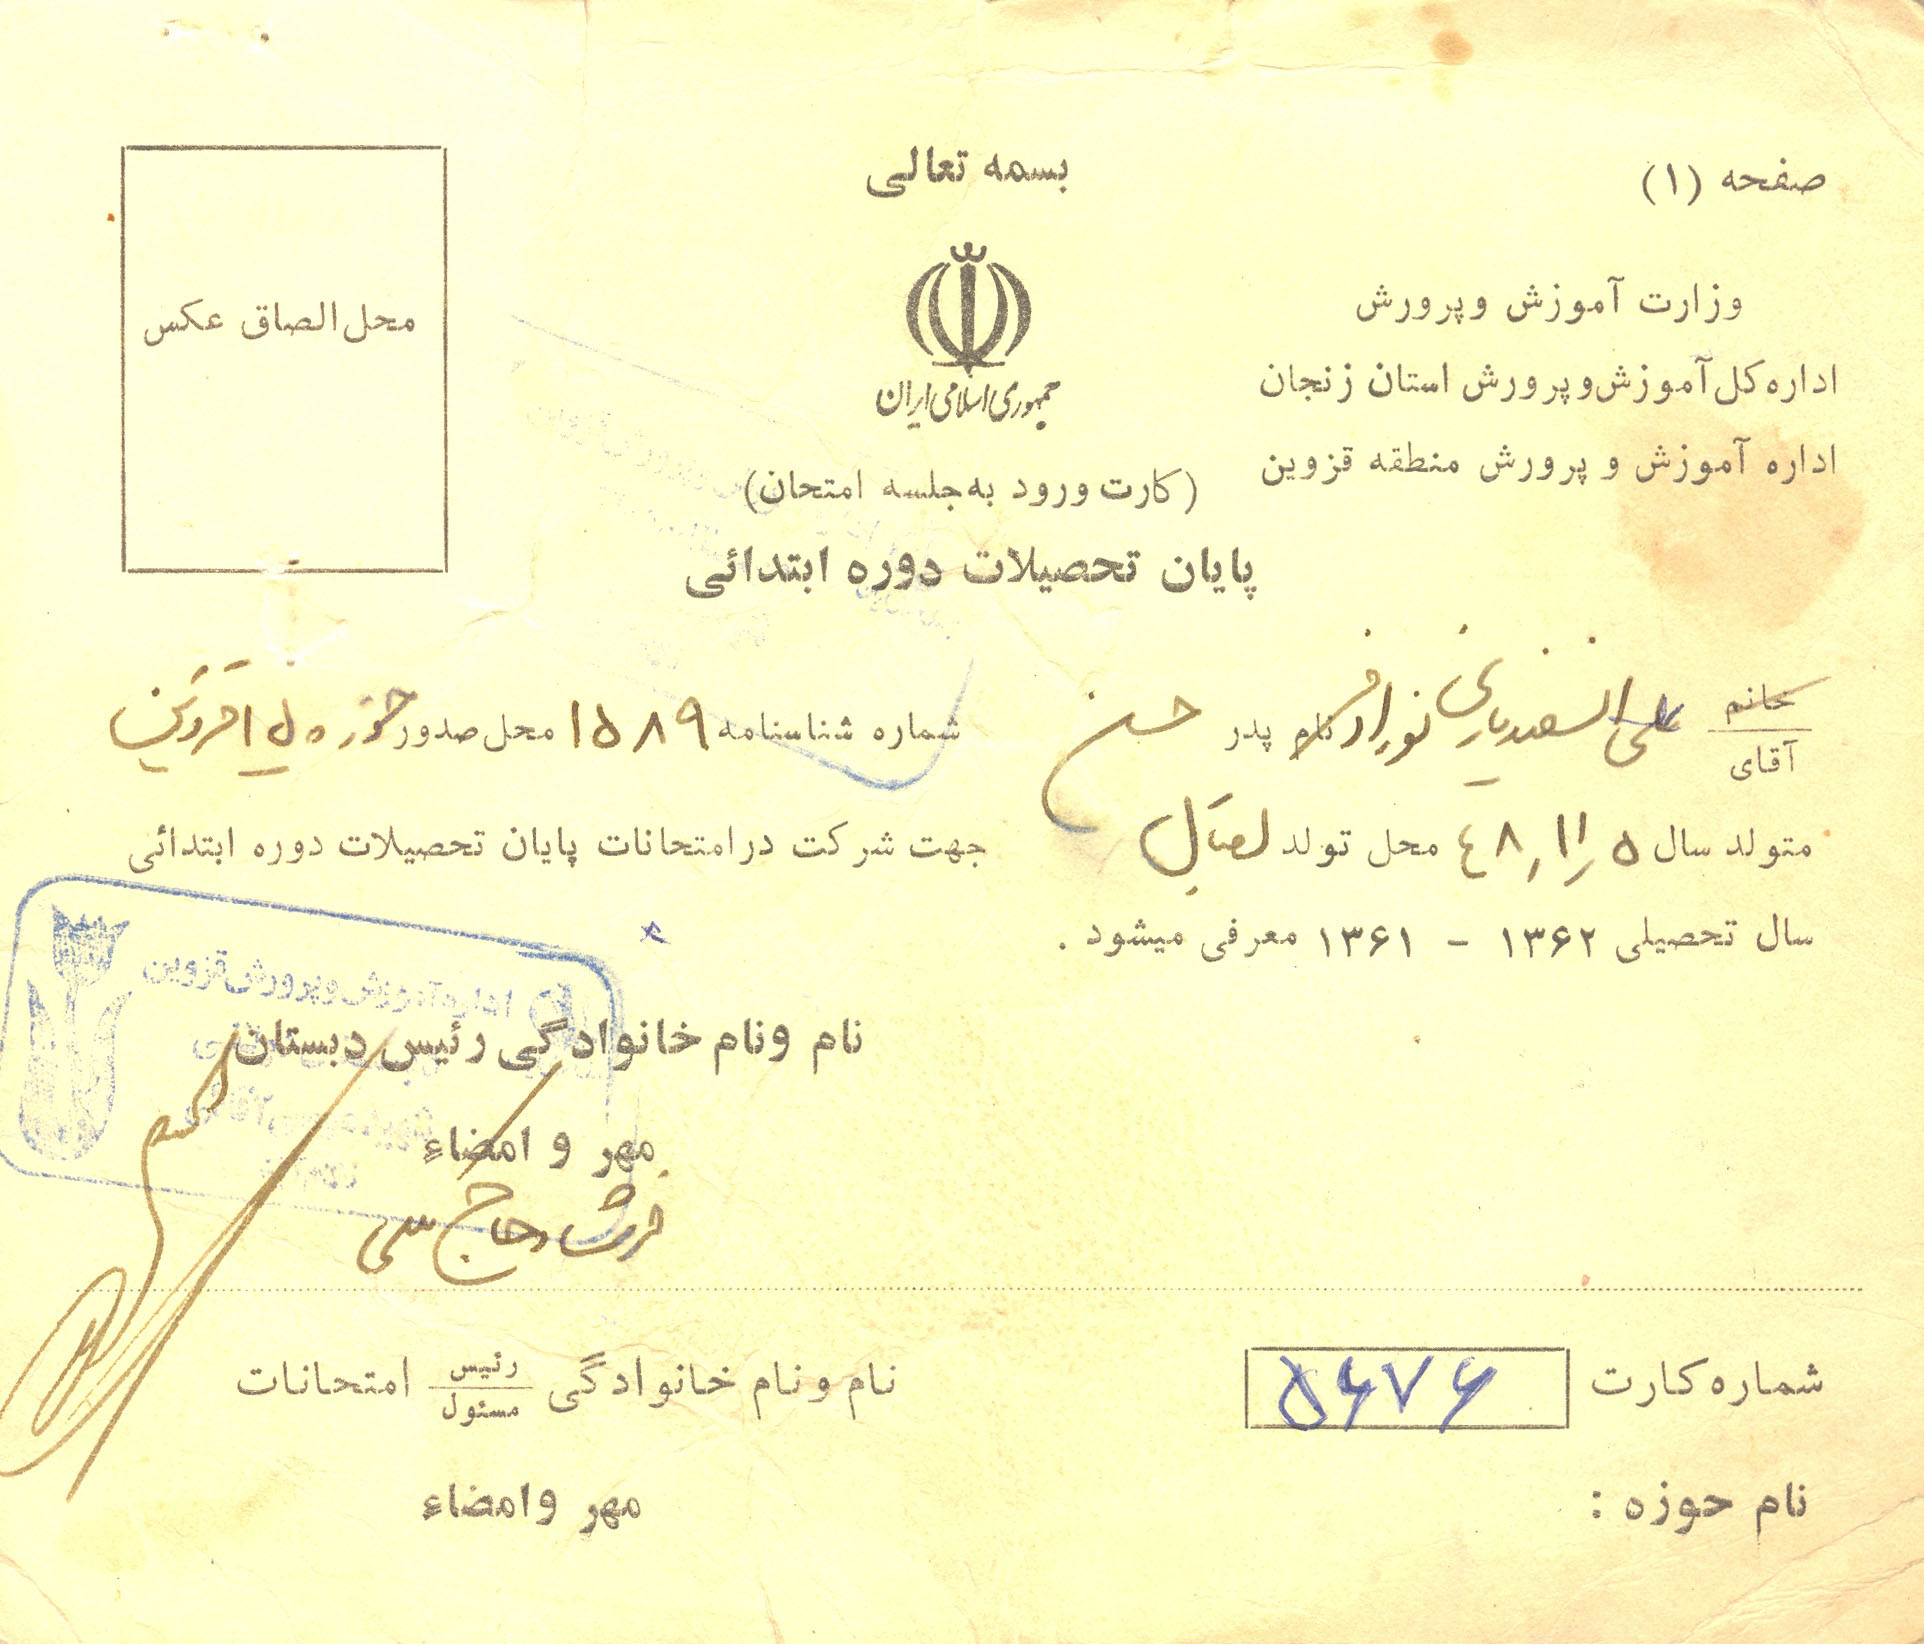 صفحه (۱)
بسمه تعالی
وزارت آموزش وپرورش
اداره کل آموزش و پرورش استان زنجان
اداره آموزش و پرورش منطقه قزوین
جمهوری اسلامی ایران
(کارت ورود به جلسه امتحان)
پایان تحصیلات دوره ابتدائی
محل الصاق عکس
خانم
آقای
علی اسفندیاری نام پدر حسن شماره شناسنامه ۱۵۸۹ محل صدور حوزه ۵ قزوین
متولد سال ۵ ر ۱۱ ر ۴۸ محل تولد جهت شرکت در امتحانات پایان تحصیلات دوره ابتدائی
سال تحصیلی ۱۳۶۲ - ۱۳۶۱ معرفی میشود .
اداره آموزش و پرورش قزوین
نام ونام خانوادگی رئیس دبستان
مهر و امضاء
شماره کارت ۵۶۷۶
نام و نام خانوادگی رئیس مسئول امتحانات
نام حوزه :
مهر وامضاء